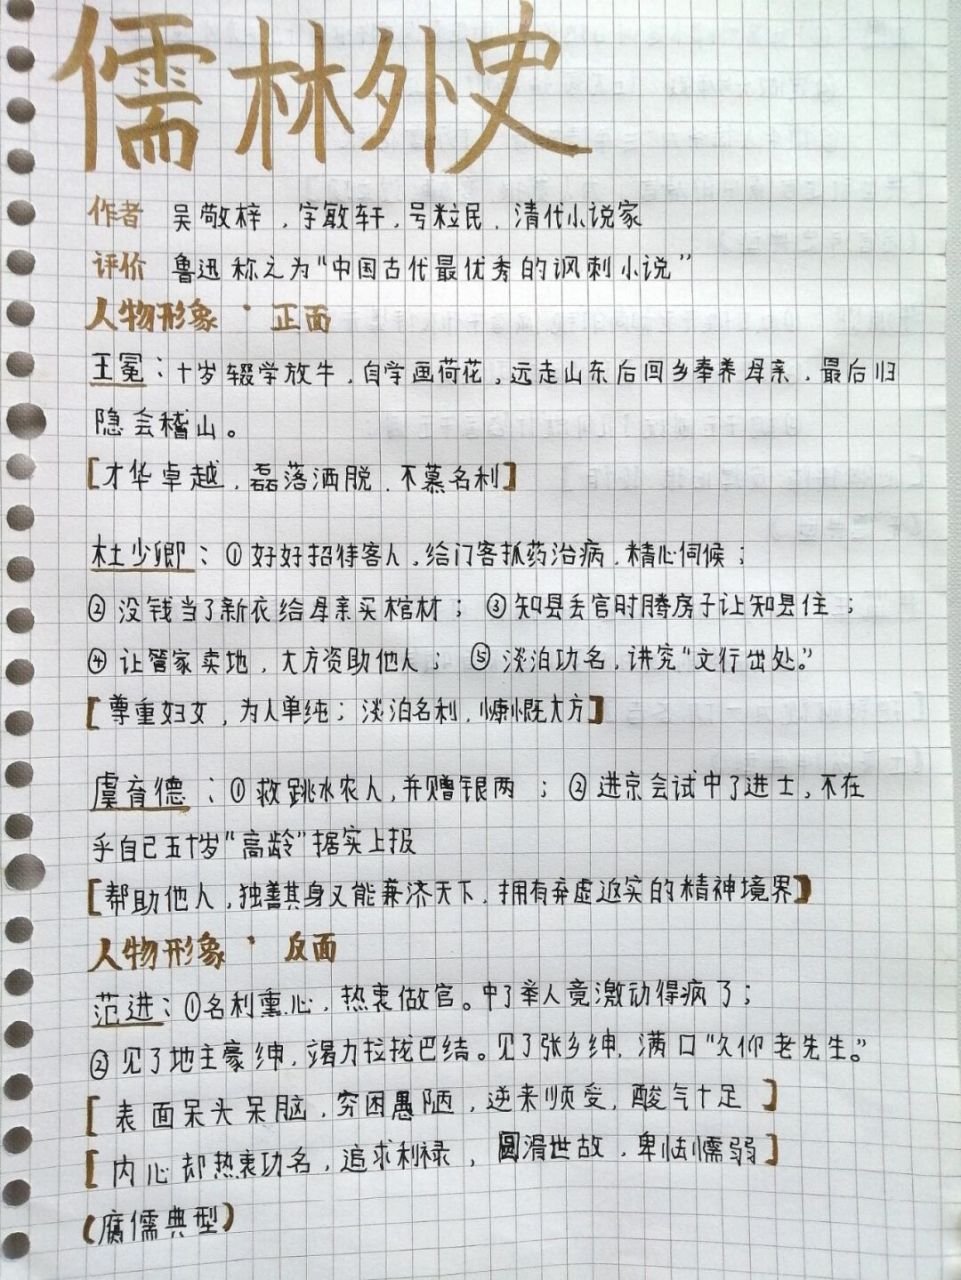 儒林外史
作者 吴敬梓,字敏轩,号粒民,清代小说家
评价 鲁迅称之为“中国古代最优秀的讽刺小说”
人物形象·正面
王冕:十岁辍学放牛,自学画荷花,远走山东后回乡奉养母亲,最后归
隐会稽山。
[才华卓越,磊落洒脱,不慕名利]
杜少卿:①好好招待客人,给门客抓药治病,精心伺候;
②没钱当了新衣给母亲买棺材;③知县丢官时腾房子让知县住;
④让管家卖地,大方资助他人;⑤淡泊功名,讲究“文行出处。”
[尊重妇女,为人单纯;淡泊名利,慷慨大方]
虞育德:①救跳水农人,并赠银两;②进京会试中了进士,不在
乎自己五十岁“高龄”据实上报
[帮助他人,独善其身又能兼济天下,拥有弃虚返实的精神境界]
人物形象·反面
范进:①名利熏心,热衷做官。中了举人竟激动得疯了;
②见了地主豪绅,竭力拉拢巴结。见了张乡绅,满口“久仰老先生。”
[表面呆头呆脑,穷困愚陋,逆来顺受,酸气十足]
[内心却热衷功名,追求利禄,圆滑世故,卑怯懦弱]
(腐儒典型)